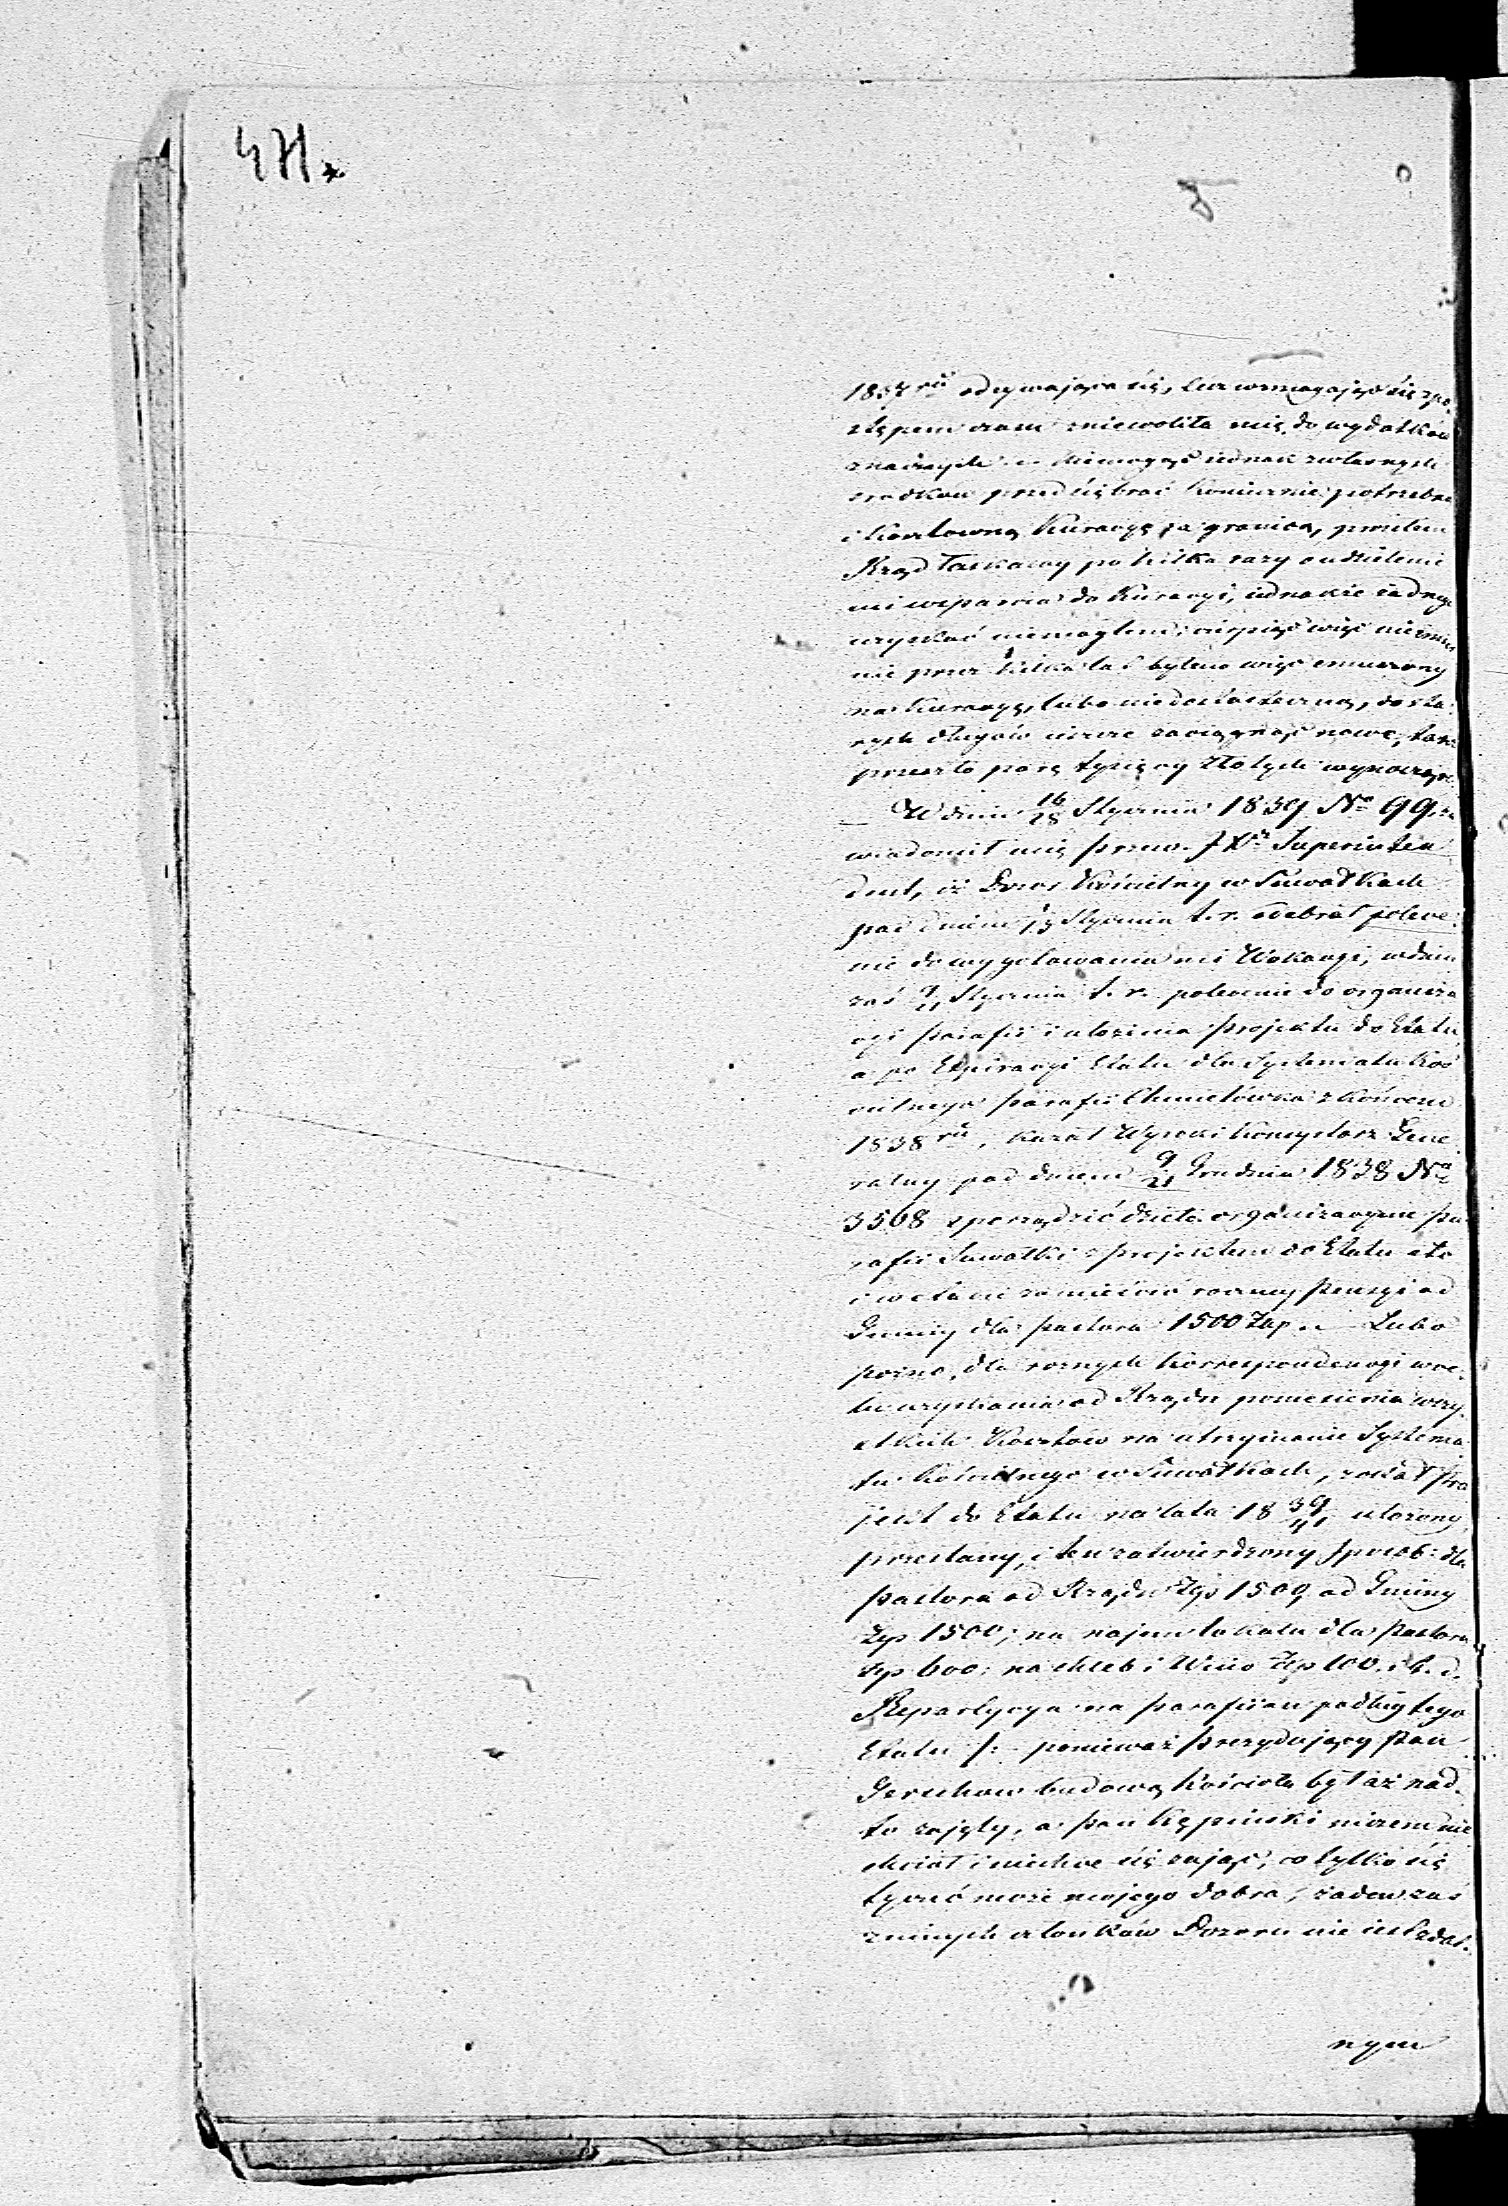 471.
8
1837 ru odzywająca się, lecz wzmagając się z po-
stępem czasu zniewoliła mię do wydatków
znacznych. – Niemogąc iednak z własnych
srodkow przedsiębrać koniecznie potrzebną
i kosztowną Kuracyę za granicą, prosiłem
Rząd łaskawy po kilka razy o udzielenie
mi wsparcia do Kuracyi, iednakże żadnego
uzyskać niemogłem; cierpiąc więc
nie przez kilka lat byłem więc zmuszony
na Kuracyę, lubo niedostateczną, do sta-
rych długów ieszcze zaciągnąć nowe,
przeszło parę tysięcy złotych wynoszące.
– W dniu 16/28 Stycznia 1839 No 99, za
wiadomił mię przew. JXdz Superinten
dent, iż Dozor Kościelny w Suwałkach
pod dniem 1/13 Stycznia t. r. odebrał polece-
nie do wygotowania mi Wokacyi, w dniu
zaś 9/21 Stycznia t. r. polecenie do organiza
cyi parafii i ułożenia projektu do Etatu,
a po Expiracyi Etatu dla Systematu Koś
cielnego parafii Chmielówka z końcem
1838 ru, kazał Wysoki Komysarz Gene
ralny pod dniem 9/21 Grudnia 1838 No
3508 sporządzić dzieło organizacyine pa
rafii Suwałki z projektem do Etatu a to
i w etacie zamieścić roczney pensyi od
Gminy dla pastora 1500 Złp. – Lubo
pozno, dla roznych Korrespondencyi wce-
lu uzyskania od Rządu pomieszczenia wszy
stkich Kosztów na utrzymanie Systema
tu Kościelnego w Suwałkach, został pro
jekt do Etatu na lata 18 39/41 ułożony
przesłany, i ten zatwierdzony sposob: dla
pastora od Rządu Złp 1500, od Gminy
Złp 1500; na najem lokalu dla Pastora
Złp 600; na chleb i Wino Złp 100. i t. d.
Repartycya na parafian podług tego
Etatu /: ponieważ prezydujący Pan
Gerschow budową kościoła był aż nad-
to zajęty, a pan Kępiński niczem nie
chciał i niechce się zająć, co tylko się
tyczyć może mojego dobra, żaden zaś
z innych członków Dozoru nie iest zdat-
nym